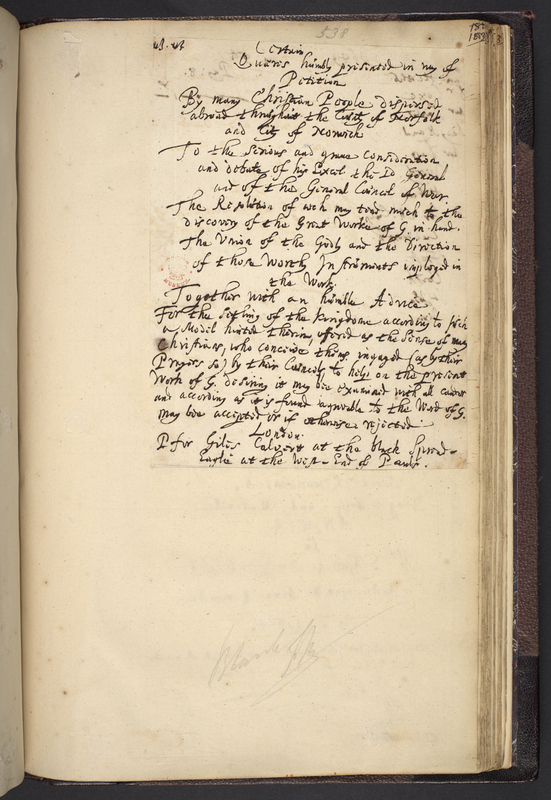 538
48. 49
Certain
Quæries humbly presented in way of
Petition
By many Christian People dispersed
abroad throughout the County of Norfolk
and Cit of Norwich
To the Serious and graue consideration
and debate of his Excel. the Ld General
and of the General Council of War
The Resolution of wch may tend much to the
discovery of the Great Worke of G. in hand.
The Union of the Godly and the Direction
of those Worthy Instruments imployed in
the Work.
Together with an humble Advice
For the Setling of the Kingdome according to such
a Model hinted therin, offered as the Sense of many
Christians, who conceiue themsel. ingaged (as by their
Prayers so) by their Councels, to help on the present
Work of G. desiring it may bee examined with all
and according as it is found agreeable to the Word of G.
may bee accepted or if otherwise rejected
London
P for Giles Calvert at the black Spread-
Eagle at the West-End of Pauls.